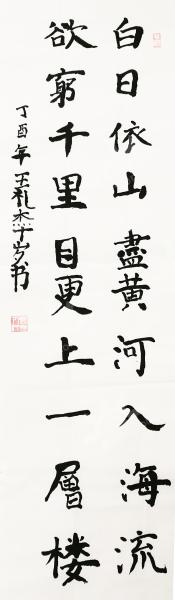 白日依山盡黄河入海流
欲窮千里目更上一層楼
丁酉年王礼杰十岁书